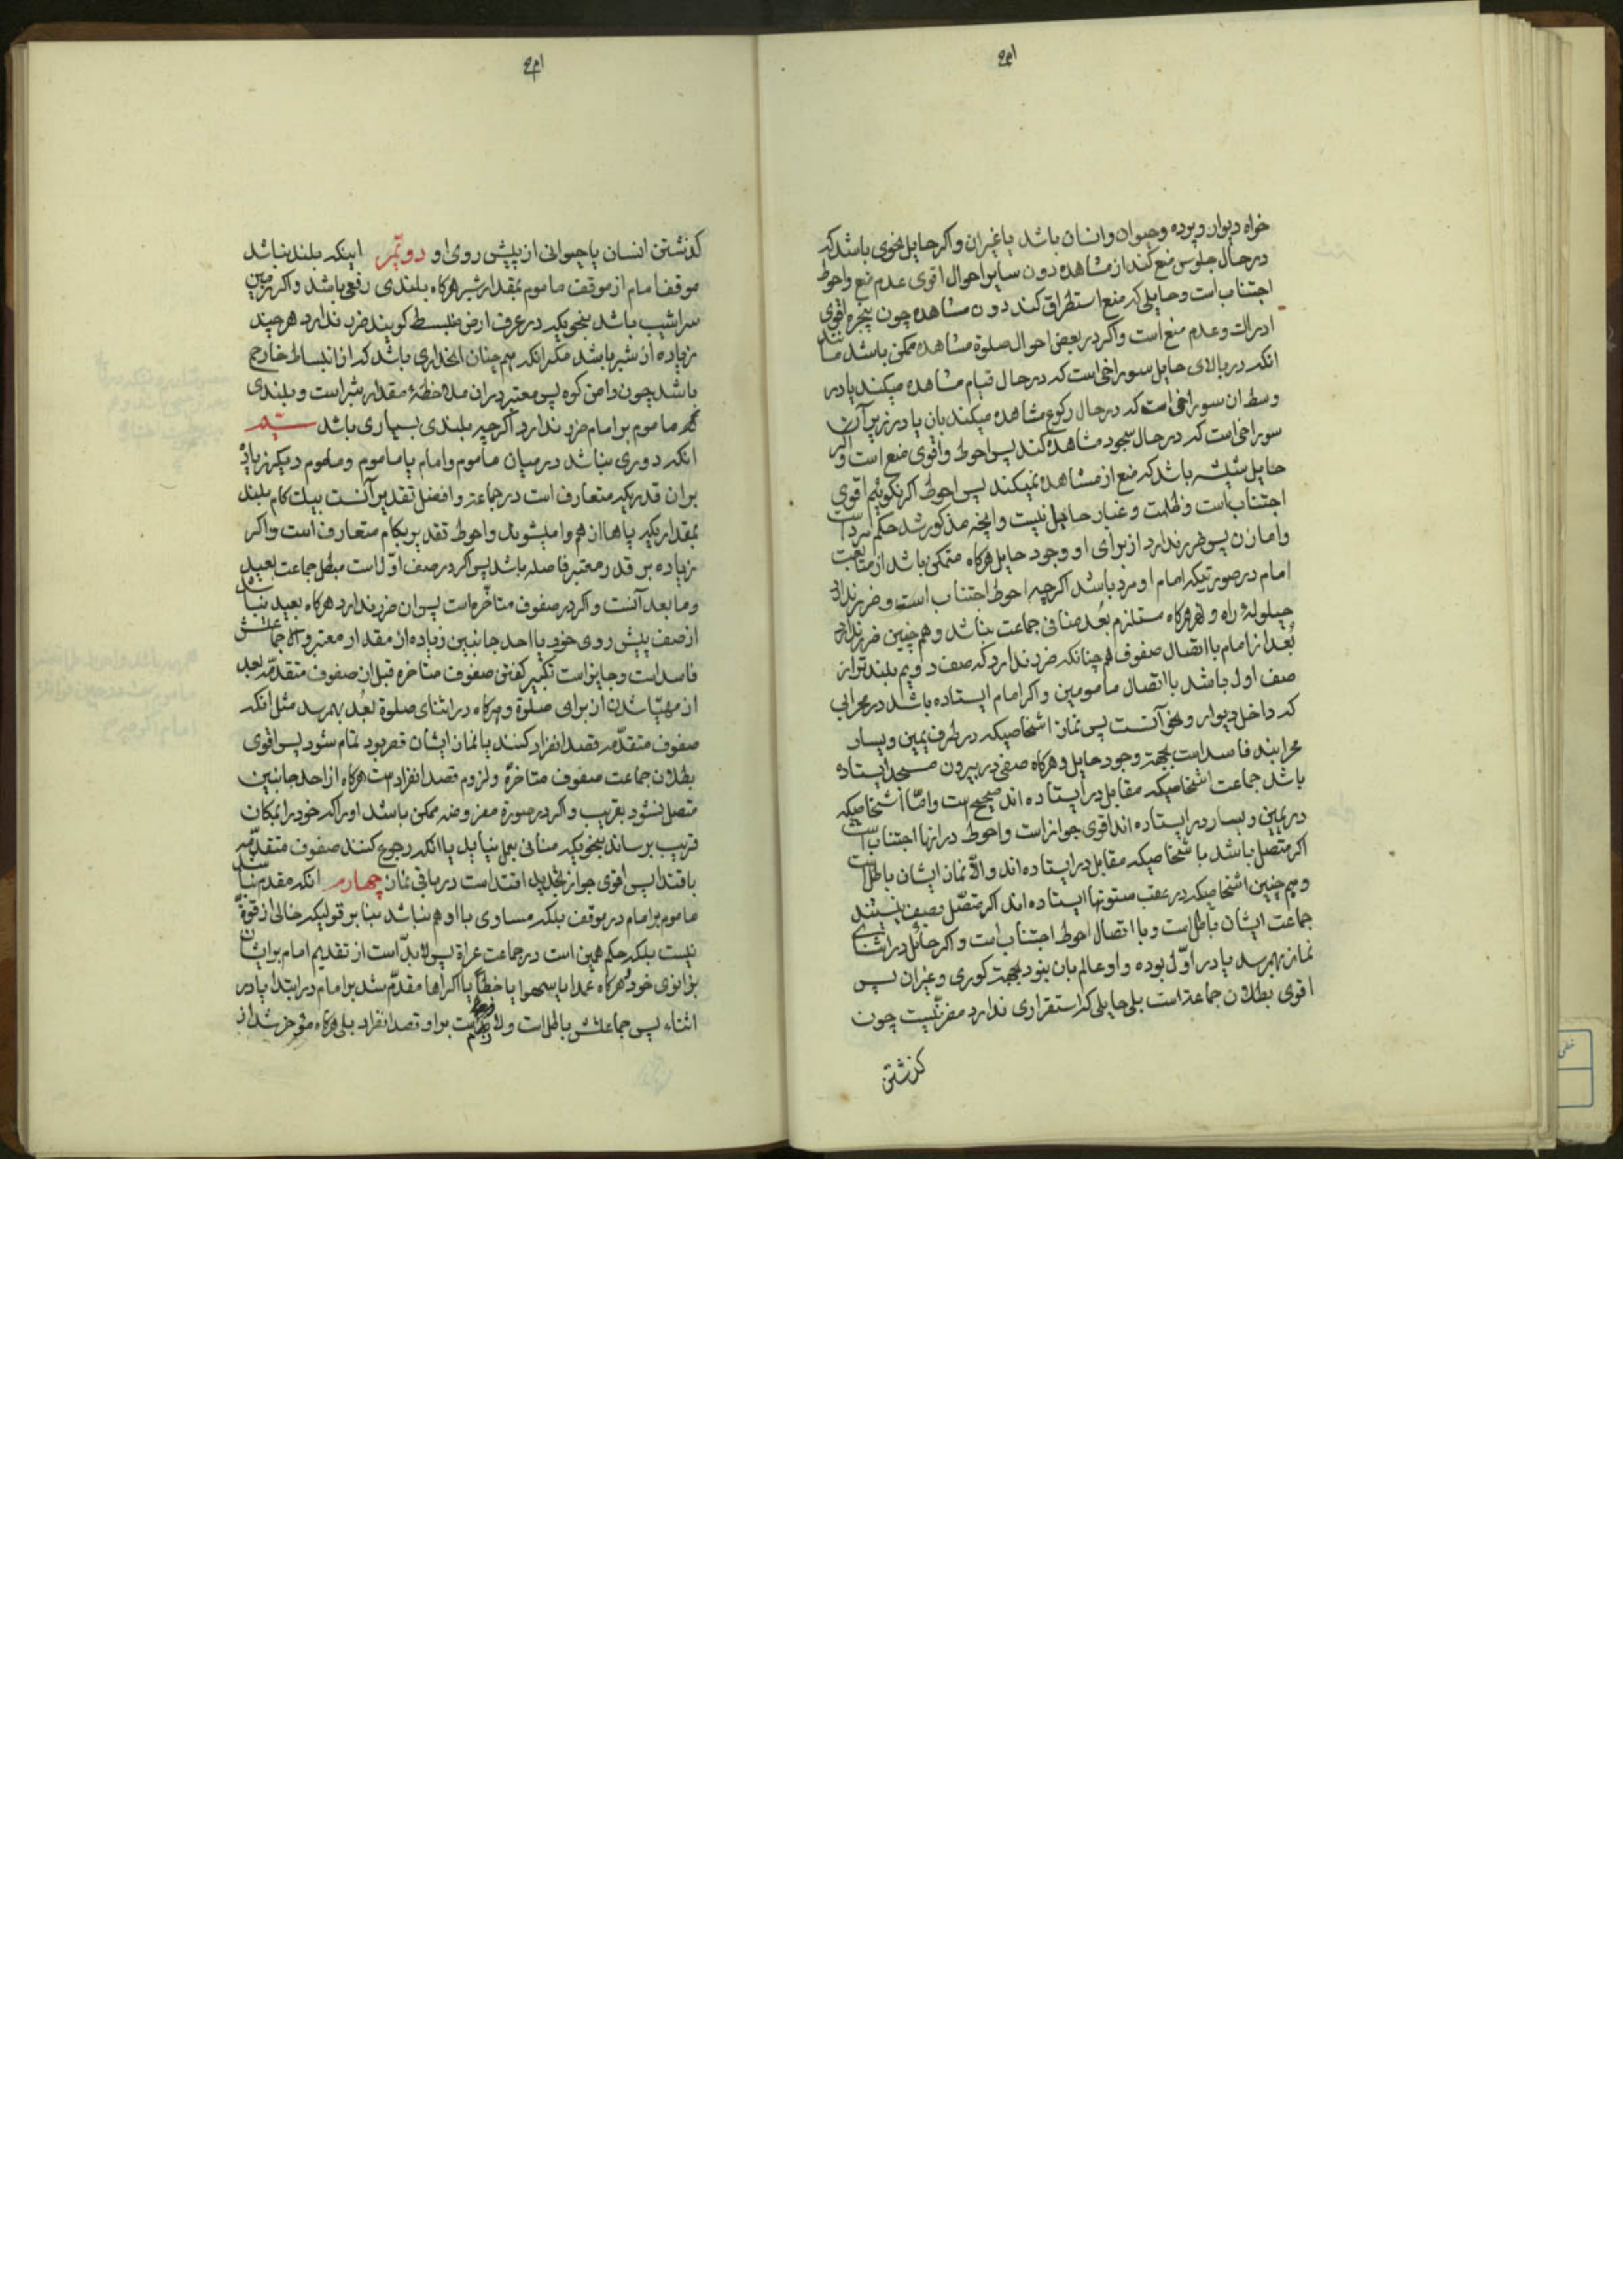 خواه دیوار و پرده و حیوان و انسان باشد یا غیر ان و اکر حایل بنحوی باشد که
در حال جلوس منع کند از مشاهده دون سایر احوال اقوی عدم منع و احوط
اجتناب است و حایلی که منع استطراق کند دون مشاهده چون پنجره اقوی
ادراک و عدم منع است و اکر در بعض احوال صلوة مشاهده ممکن باشد مانند
انکه در بالای حایل سوراخی است که در حال قیام مشاهده میکند یا در
وسط ان سوراخی است که در حال رکوع مشاهده میکند بان یا در زیر آن
سوراخی است که در حال سجود مشاهده کند پس احوط و اقوی منع است و اکر
حایل شیشه باشد که منع از مشاهده نمیکند پس احوط اکر نکوئیم اقوی
اجتناب است و ظلمت و غبار حایل نیست و انچه مذکور شد حکم مرد است
و اما زن پس ضرر ندارد از برای او وجود حایل هرکاه متمکن باشد از متابعت
امام در صورتیکه امام او مرد باشد اکرچه احوط اجتناب است و ضرر ندارد
حیلولهٔ راه و نهر هرکاه مستلزم بُعد منافی جماعت نباشد و هم چنین ضرر ندارد
بُعد از امام با اتصال صفوف هم چنانکه ضرر ندارد که صف دویم بلندتر از
صف اول باشد با اتصال مأمومین و اکر امام ایستاده باشد در محرابی
که داخل دیوار و نحو آنست پس نماز اشخاصیکه در طرف یمین و یسار
محرابند فاسد است بجهة وجود حایل و هرکاه صفی در بیرون مسجد ایستاده
باشد جماعت اشخاصیکه مقابل در ایستاده اند صحیح است و امّا اشخاصیکه
در یمین و یسار در ایستاده اند اقوی جواز است و احوط در انها اجتناب است
اکر متصل باشد با شخاصیکه مقابل در ایستاده اند و الّا نماز ایشان باطل است
و هم چنین اشخاصیکه در عقب ستونها ایستاده اند اکر متصّل بصف نیستند
جماعت ایشان باطل است و با اتصال احوط اجتناب است و اکر حائل در اثنای
نماز بهم رسد یا در اوّل بوده و او عالم بان نبود بجهت کوری و غیر ان پس
اقوی بطلان جماعة است بلی حایلی که استقراری ندارد مضر نیست چون
کذشتن
کذشتن انسان یا حیوانی از پیش روی او دویّم اینکه بلند نباشد
موقف امام از موقف ماموم بمقدار شبر هرکاه بلندی دفعی باشد و اکر زمین
سراشیب باشد بنحویکه در عرف ارض منبسط کویند ضرر ندارد هرچند
زیاده از شبر باشد مکر انکه هم چنان انحداری باشد که از انبساط خارج
باشد چون دامن کوه پس معتبر در ان ملاحظهٔ مقدار شبر است و بلندی
ماموم بر امام ضرر ندارد اکرچه بلندی بسیاری باشد سیّم
انکه دوری نباشد در میان مأموم و امام یا ماموم و ماموم دیکر زیاده
بر ان قدریکه متعارف است در جماعة و افضل تقدیر آنست بیک کام بلند
بمقداریکه پاها از هم وامیشوند و احوط تقدیر بکام متعارف است و اکر
زیاده بر قدر معتبر فاصله باشد پس اکر در صف اوّل است مبطل جماعت بعید
و ما بعد آنست و اکر در صفوف متاخّره است پس ان ضرر ندارد هرکاه بعید نباشد
از صف پیش روی خود یا احد جانبین زیاده از مقدار معتبر و الا جماعتش
فاسد است و جایز است تکبیر کفتن صفوف متاخره قبل از صفوف متقدّمه بعد
از مهیّا شدن ان برای صلوة و هرکاه در اثنای صلوة بُعد بهم رسد مثل انکه
صفوف متقدّمه قصد انفراد کنند یا نماز ایشان قصر بود تمام شود پس اقوی
بطلان جماعت صفوف متاخرهٔ و لزوم قصد انفراد است هرکاه از احد جانبین
متصل نشود بقریب و اکر در صورة مفروضه ممکن باشد او را که خود را بمکان
قریب برساند بنحویکه منافی بعمل نیاید یا انکه رجوع کنند صفوف متقدّمه
باقتدا پس اقوی جواز تجدید اقتدا است در باقی نماز چهارم انکه مقدم نباشد
ماموم بر امام در موقف بلکه مساوی با او هم نباشد بنا بر قولیکه خالی از قوّة
نیست بلکه حکم همین است در جماعت عراة پس لابدّ است از تقدیم امام بر ایشان
بزانوی خود و هرکاه عمدا یا سهوا یا خطأ یا اکراها مقدّم شد بر امام در ابتدا یا در
اثناء پس جماعتش باطل است و لازم است بر او قصد انفراد بلی هرکاه مؤخر شد از